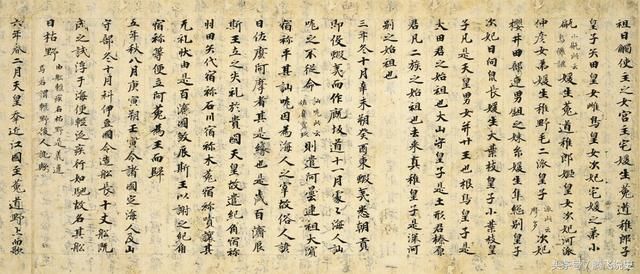 祖日觸使主之女宮主宅媛生菟道稚郎子
皇子矢田皇女雌鳥皇女次妃宅媛之弟小
甂媛小甂此云烏儺謎生菟道稚郎姬皇女次妃河派
仲彥女弟媛生稚野毛二派皇子派此云摩多次妃
櫻井田部連男鉏之妹糸媛生隼総別皇子
次妃日向泉長媛生大葉枝皇子小葉枝皇
子凡是天皇男女并廿王也根鳥皇子是
大田君之始祖也大山守皇子是土形君榛原
君凡二族之始祖也去来真稚皇子是深河
別之始祖也
三年冬十月辛未朔癸酉東蝦夷悉朝貢
即役蝦夷而作厩坂道十一月處々海人訕
哤之不従命訕哤此云佐麼賣玖則遣阿曇連祖大濱
宿祢平其訕哤因為海人之宰故俗人諺
曰佐麼阿摩者其是緣也是歲百濟辰
斯王立之失礼於貴國天皇故遣紀角宿祢
羽田矢代宿祢石川宿祢木菟宿祢嘖讓其
无礼狀由是百濟國殺辰斯王以謝之紀角
宿祢等便立阿花為王而歸
五年秋八月庚寅朔壬寅令諸國定海人及山
守部冬十月科伊豆國令造船長十丈船既
成之試浮于海便輕泛疾行如馳故名其船
曰枯野由船輕疾名枯野是義違焉若謂輕野後人訛歟
六年春二月天皇幸近江國至菟道野上而歌